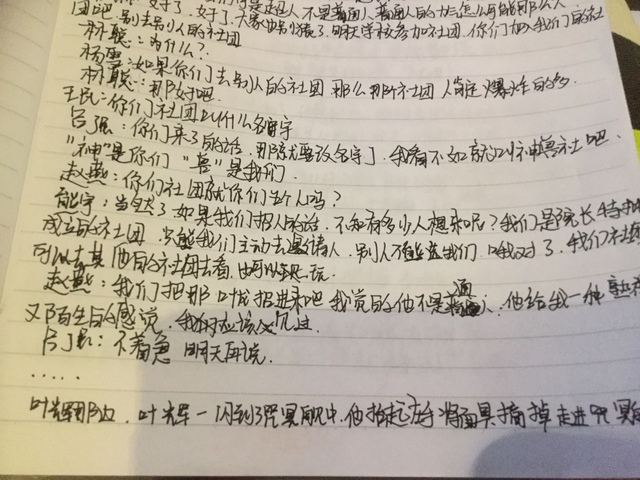 好了，好了，大家也别猜了，明天学校参加社团，你们加入我们的社
团吧，别去别人的社团
林聪：为什么？
杨雪：如果你们去别人的社团 那么那个社团人肯定爆炸的多
林聪：那好吧
王民：你们社团叫什么名字
吕强：你们来了的话，那就要改名字了，我看不如就叫神兽社吧，
"神"是你们 "兽"是我们。
赵燕：你们社团就你们5个人吗？
能宇：当然了如果我们招人的话，不知有多少人想来呢？我们是院长特批
成立的社团 只能我们主动去邀请人，别人不能进我们，哦对了，我们社
可以去其他的社团去看，也可以玩一玩。
赵燕：我们把那叶龙招进来吧 我觉的他不是普通人，他给我一种熟
又陌生的感觉，我们应该见过。
吕强：不着急 明天再说。
.....
叶辉那边，叶辉一闪到了冥殿中，他抬起左手将面具摘掉走进冥